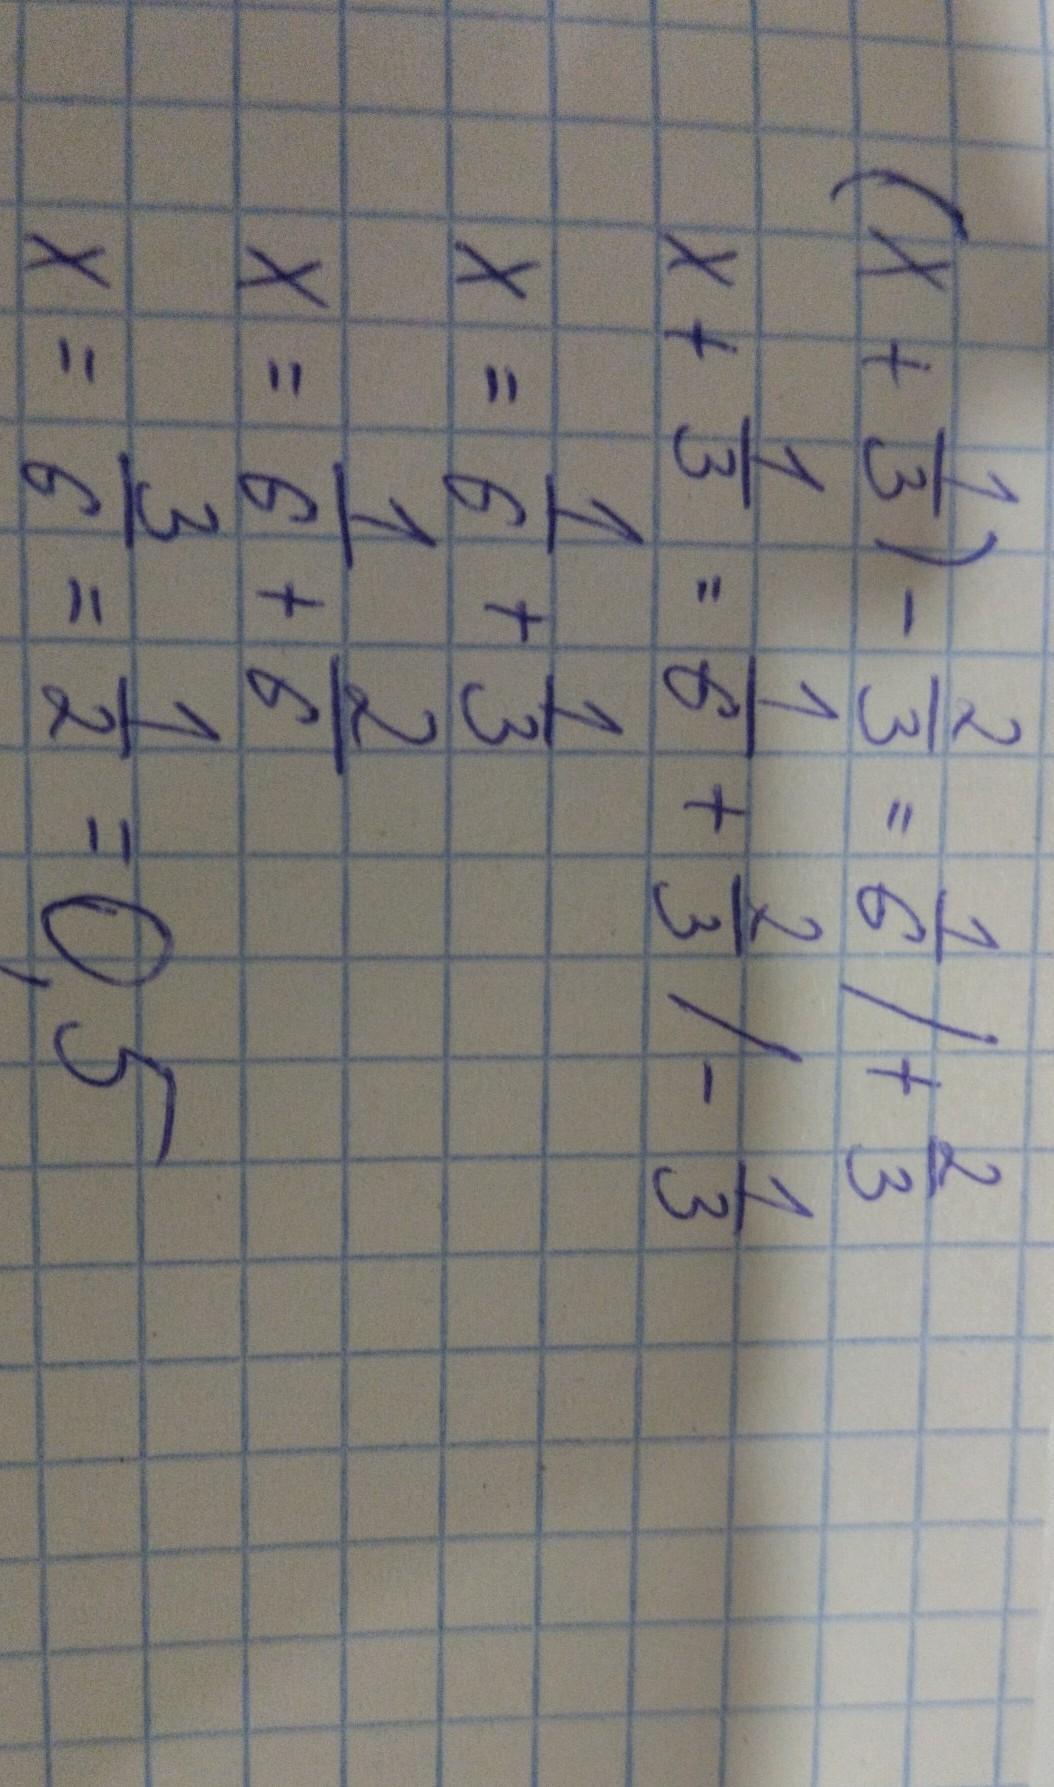 (x + 1/3) - 2/3 = 1/6 / + 2/3
x + 1/3 = 1/6 + 2/3 / - 1/3
x = 1/6 + 1/3
x = 1/6 + 2/6
x = 3/6 = 1/2 = 0,5